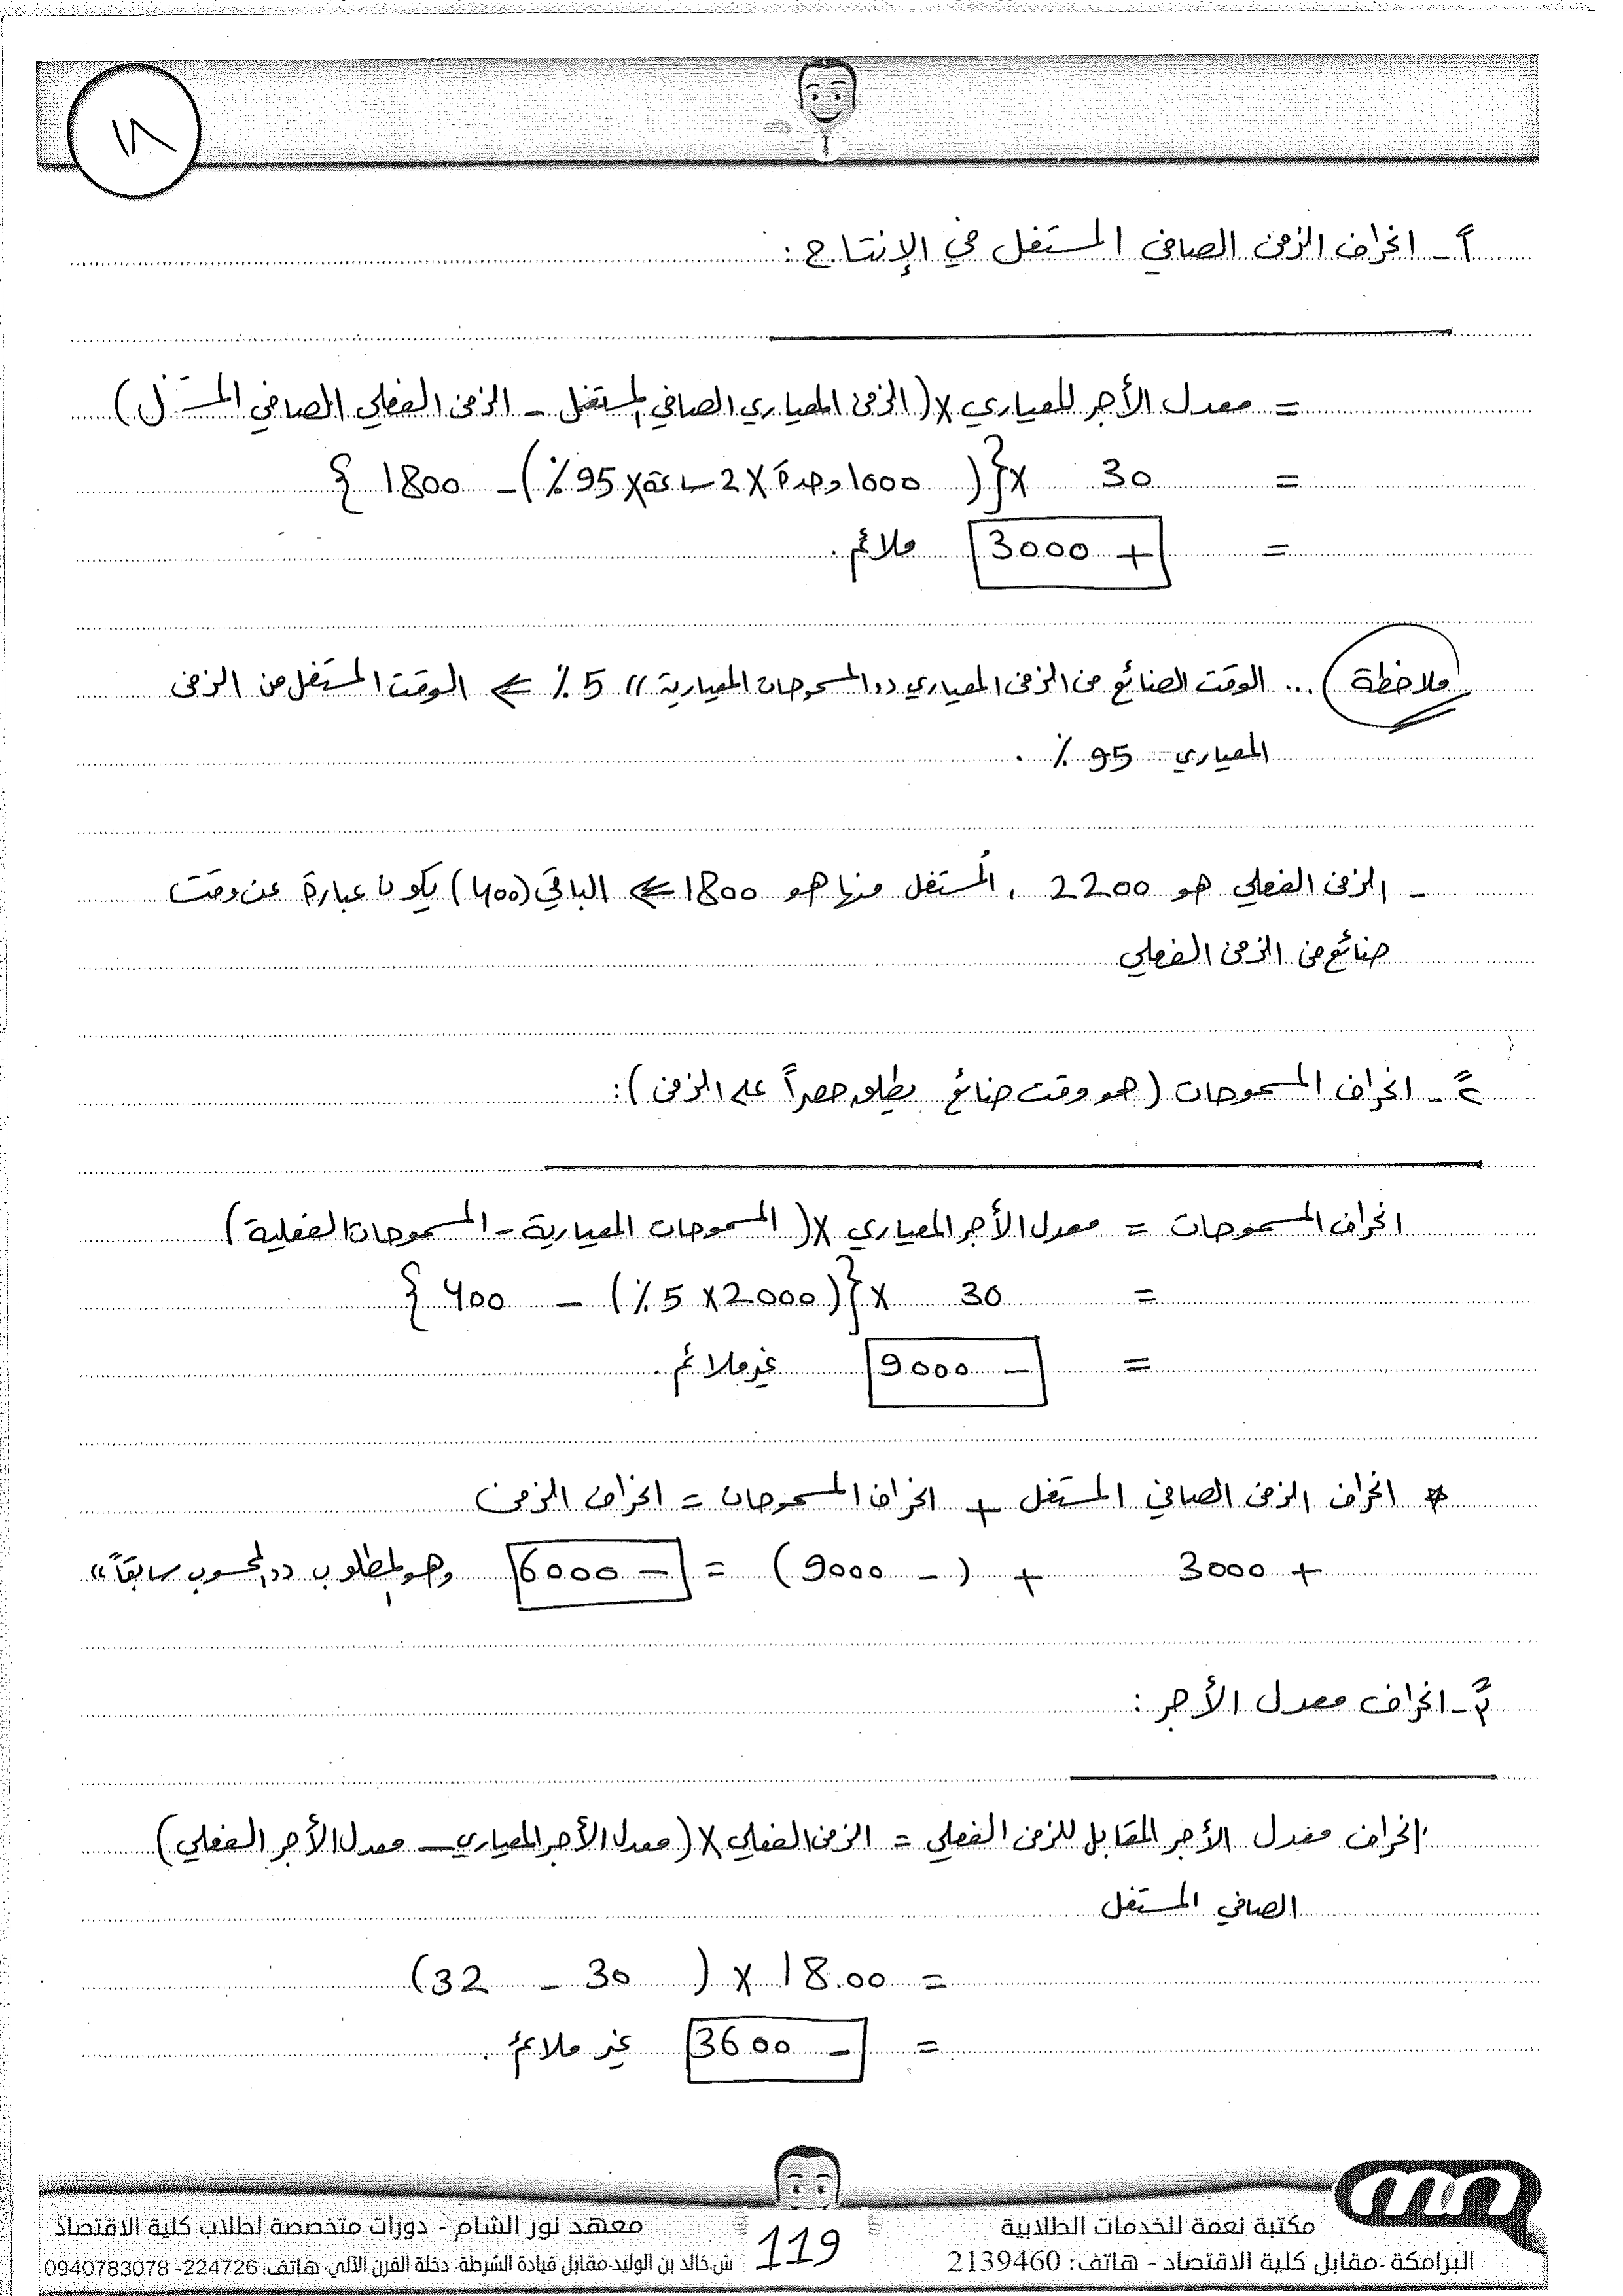 ١٨
١ً - انحراف الزمن الصافي المستغل في الإنتاج :
= معدل الأجر المعياري × (الزمن المعياري الصافي المستغل - الزمن الفعلي الصافي المستغل)
= 30 × {( 1000 وحدة × 2 ساعة × 95 ٪) - 1800 }
= + 3000 ملائم .
ملاحظة ... الوقت الضائع من الزمن المعياري (( المسموحات المعيارية )) 5 ٪ ⇐ الوقت المستغل من الزمن
المعياري 95 ٪ .
- الزمن الفعلي هو 2200 ، المستغل منها هو 1800 ⇐ الباقي (400) يكون عبارة عن وقت
ضائع من الزمن الفعلي
٢ً - انحراف المسموحات ( هو وقت ضائع يطلق حصراً على الزمن ) :
انحراف المسموحات = معدل الأجر المعياري × ( المسموحات المعيارية - المسموحات الفعلية )
= 30 × {( 2000 × 5 ٪) - 400 }
= - 9000 غير ملائم .
* انحراف الزمن الصافي المستغل + انحراف المسموحات = انحراف الزمن
+ 3000 + ( - 9000 ) = - 6000 وهو المطلوب (( المحسوب سابقاً ))
٣ً - انحراف معدل الأجر :
انحراف معدل الأجر المقابل للزمن الفعلي = الزمن الفعلي × ( معدل الأجر المعياري - معدل الأجر الفعلي )
الصافي المستغل
= 1800 × ( 30 - 32 )
= - 3600 غير ملائم .
مكتبة نعمة للخدمات الطلابية
البرامكة - مقابل كلية الاقتصاد - هاتف: 2139460
119
معهد نور الشام - دورات متخصصة لطلاب كلية الاقتصاد
ش.خالد بن الوليد-مقابل قيادة الشرطة- دخلة الفرن الآلي- هاتف: 224726- 0940783078